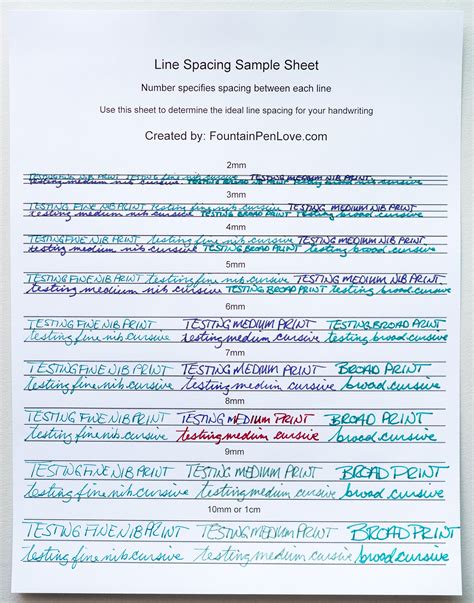 Line Spacing Sample Sheet
Number specifies spacing between each line
Use this sheet to determine the ideal line spacing for your handwriting
Created by: FountainPenLove.com
2mm
TESTING FINE NIB PRINT testing fine nib cursive TESTING MEDIUM NIB PRINT
testing medium nib cursive TESTING BROAD NIB PRINT testing broad nib cursive
3mm
TESTING FINE NIB PRINT testing fine nib cursive TESTING MEDIUM NIB PRINT
testing medium nib cursive TESTING BROAD PRINT testing broad nib cursive
4mm
TESTING FINE NIB PRINT testing fine nib cursive TESTING MEDIUM NIB PRINT
testing medium nib cursive TESTING BROAD NIB PRINT testing broad nib cursive
5mm
TESTING FINE NIB PRINT testing fine nib cursive TESTING MEDIUM NIB PRINT
testing medium nib cursive TESTING BROAD NIB PRINT testing broad nib cursive
6mm
TESTING FINE NIB PRINT TESTING MEDIUM PRINT TESTING BROAD PRINT
testing fine nib cursive testing medium cursive testing broad cursive
7mm
TESTING FINE NIB PRINT TESTING MEDIUM PRINT BROAD PRINT
testing fine nib cursive testing medium cursive broad cursive
8mm
TESTING FINE NIB PRINT TESTING MEDIUM PRINT BROAD PRINT
testing fine nib cursive testing medium cursive broad cursive
9mm
TESTING FINE NIB PRINT TESTING MEDIUM PRINT BROAD PRINT
testing fine nib cursive testing medium cursive broad cursive
10mm or 1cm
TESTING FINE NIB PRINT TESTING MEDIUM PRINT BROAD PRINT
testing fine nib cursive testing medium cursive broad cursive